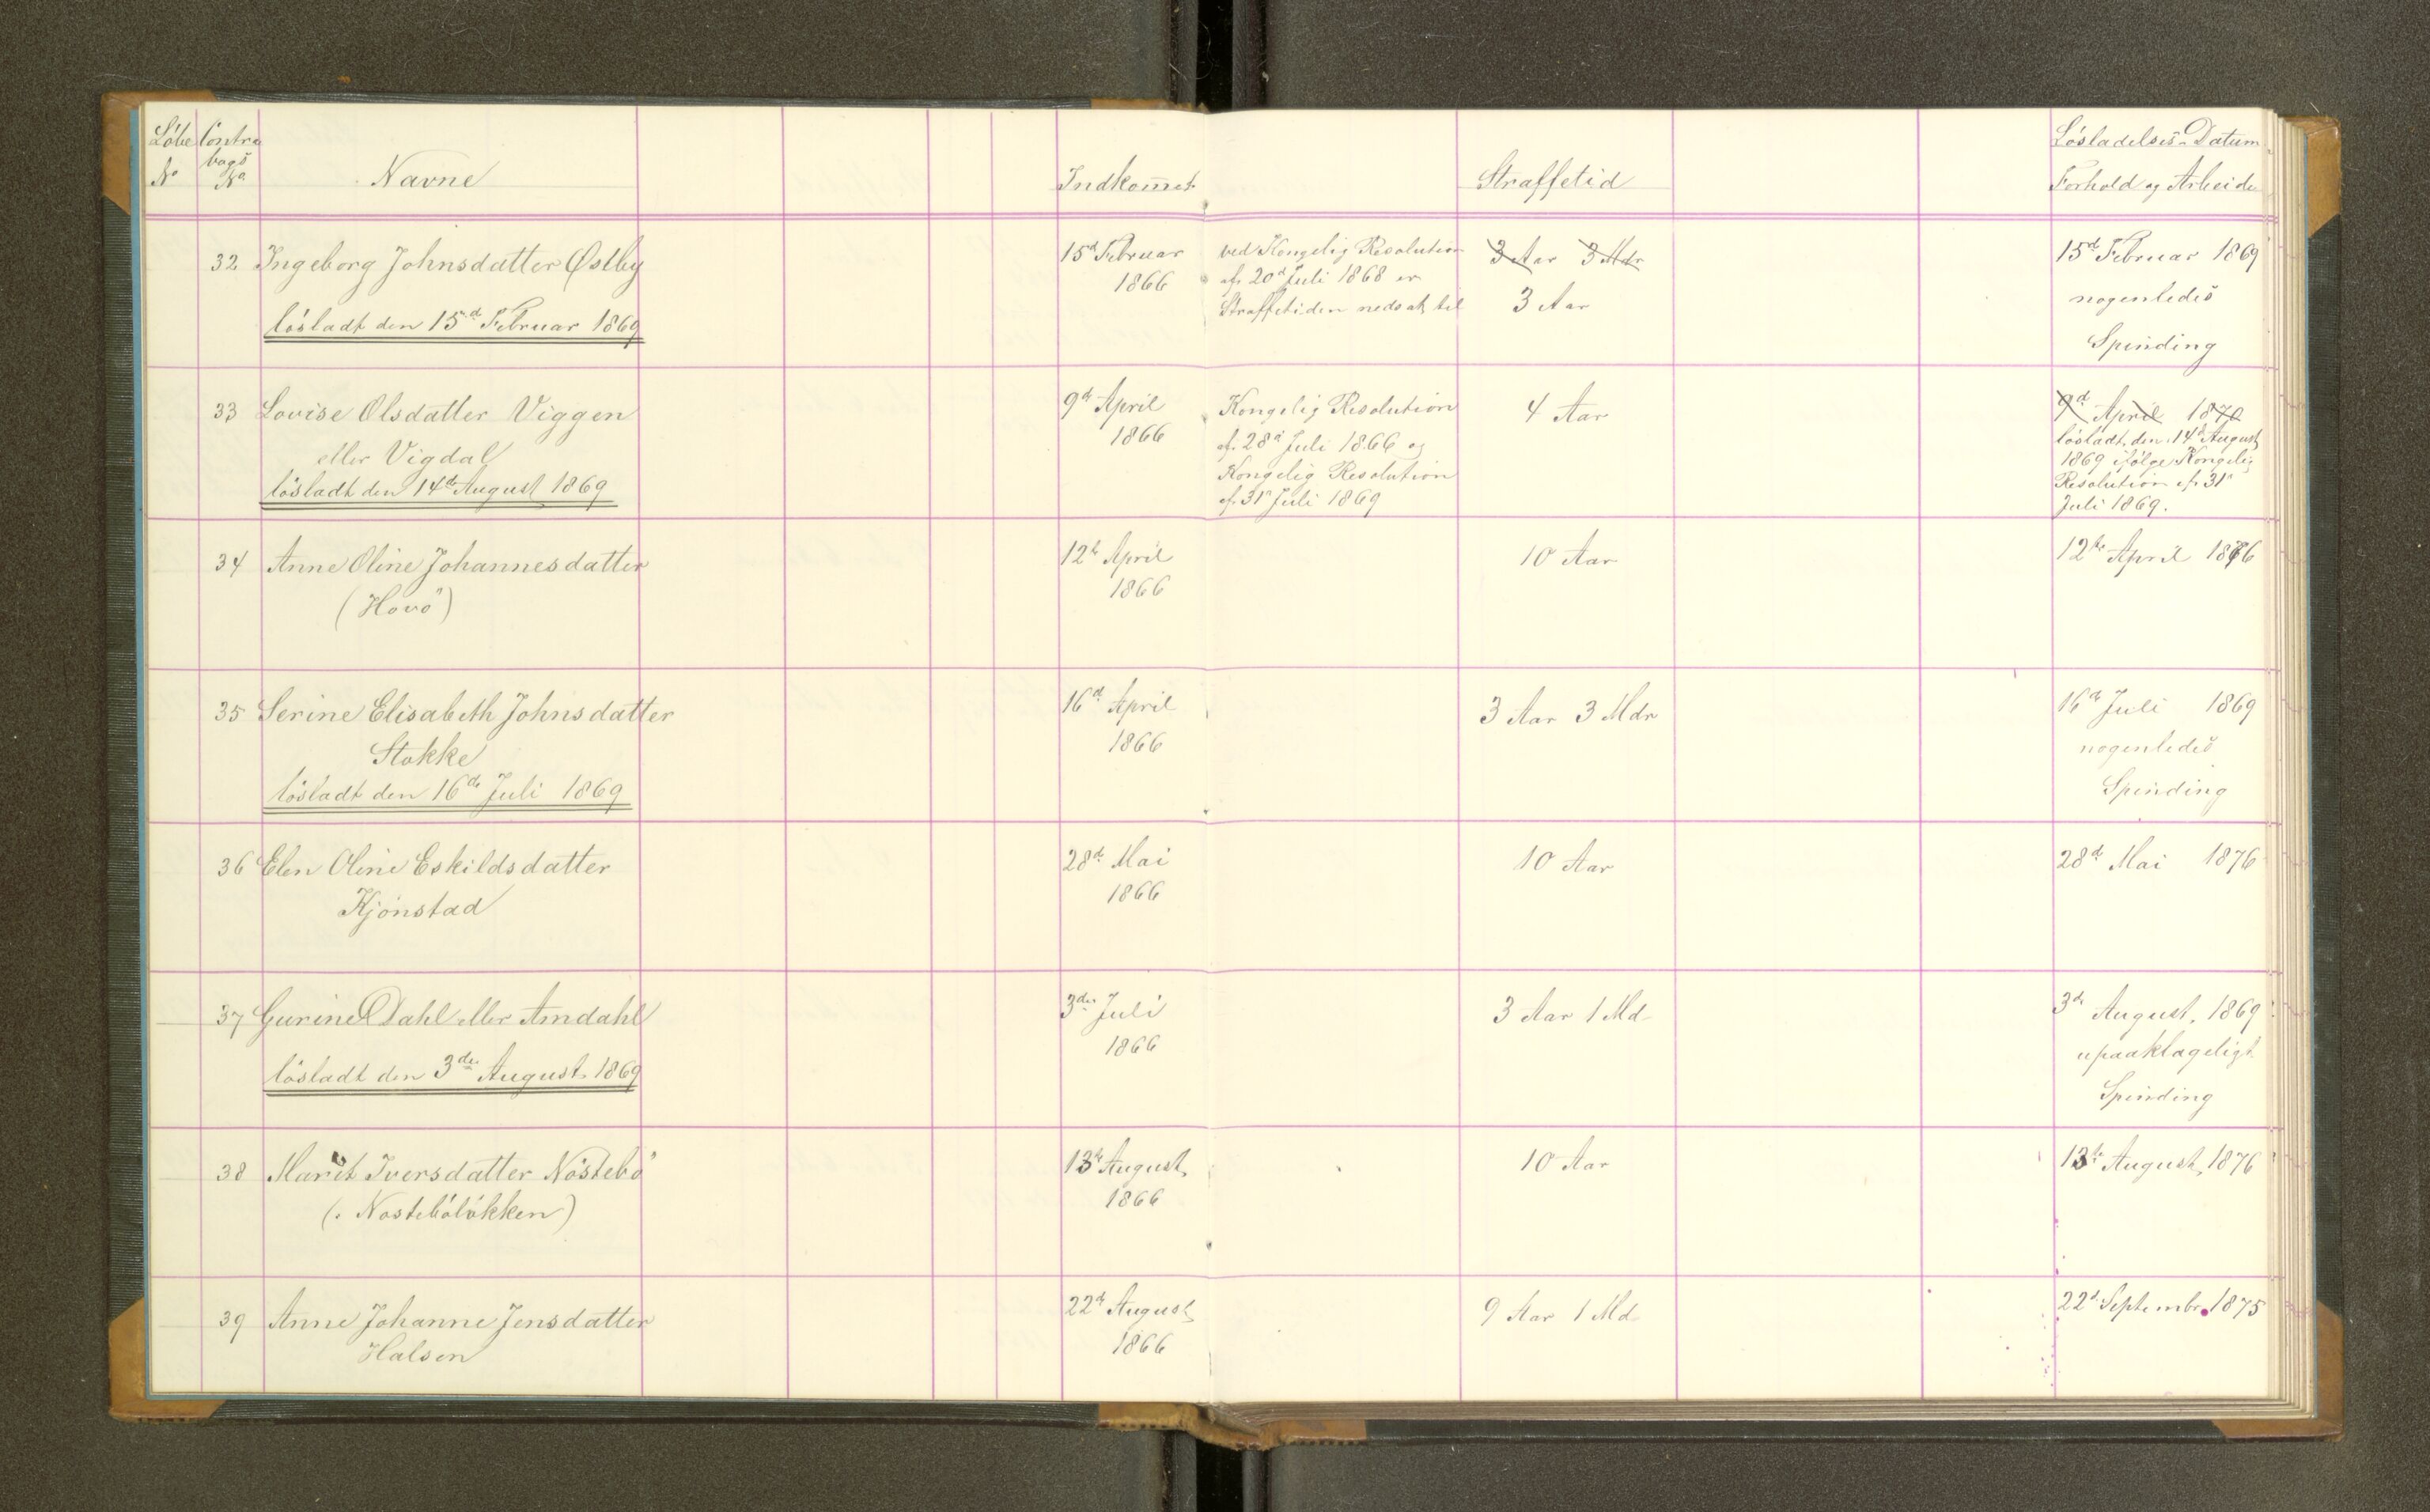 Löbe Contra
bogs
No No Navne Indkom̄et Straffetid Lösladelses-Datum
Forhold og Arbeide
32 Ingeborg Johnsdatter Østby
lösladt den 15d Februar 1869
15d Februar
1866
ved Kongelig Resolution
af 20d Juli 1868 er
Straffetiden nedsat til
3 Aar 3 Mdr
3 Aar
15d Februar 1869
nogenledes
Spinding
33 Lovise Olsdatter Viggen
eller Vigdal
lösladt den 14de August 1869
9de April
1866
Kongelig Resolution
af 28d Juli 1866 og
Kongelig Resolution
af 31 Juli 1869
4 Aar
9d April 1870
lösladt den 14d August
1869 ifölge Kongelig
Resolution af 31
Juli 1869.
34 Anne Oline Johannesdatter
(Hovö)
12te April
1866
10 Aar
12te April 1876
35 Serine Elisabeth Johnsdatter
Stokke
lösladt den 16de Juli 1869
16d April
1866
3 Aar 3 Mdr
16de Juli 1869
nogenledes
Spinding
36 Elen Oline Eskildsdatter
Kjönstad
28d Mai
1866
10 Aar
28d Mai 1876
37 Gurine Dahl eller Amdahl
lösladt den 3die August 1869
3die Juli
1866
3 Aar 1 Md
3die August 1869
upaaklageligt
Spinding
38 Marit Iversdatter Nöstebö
(: Nostebölökken)
13te August
1866
10 Aar
13te August 1876
39 Anne Johanne Jensdatter
Halsen
22de August
1866
9 Aar 1 Md
22d Septembr 1875